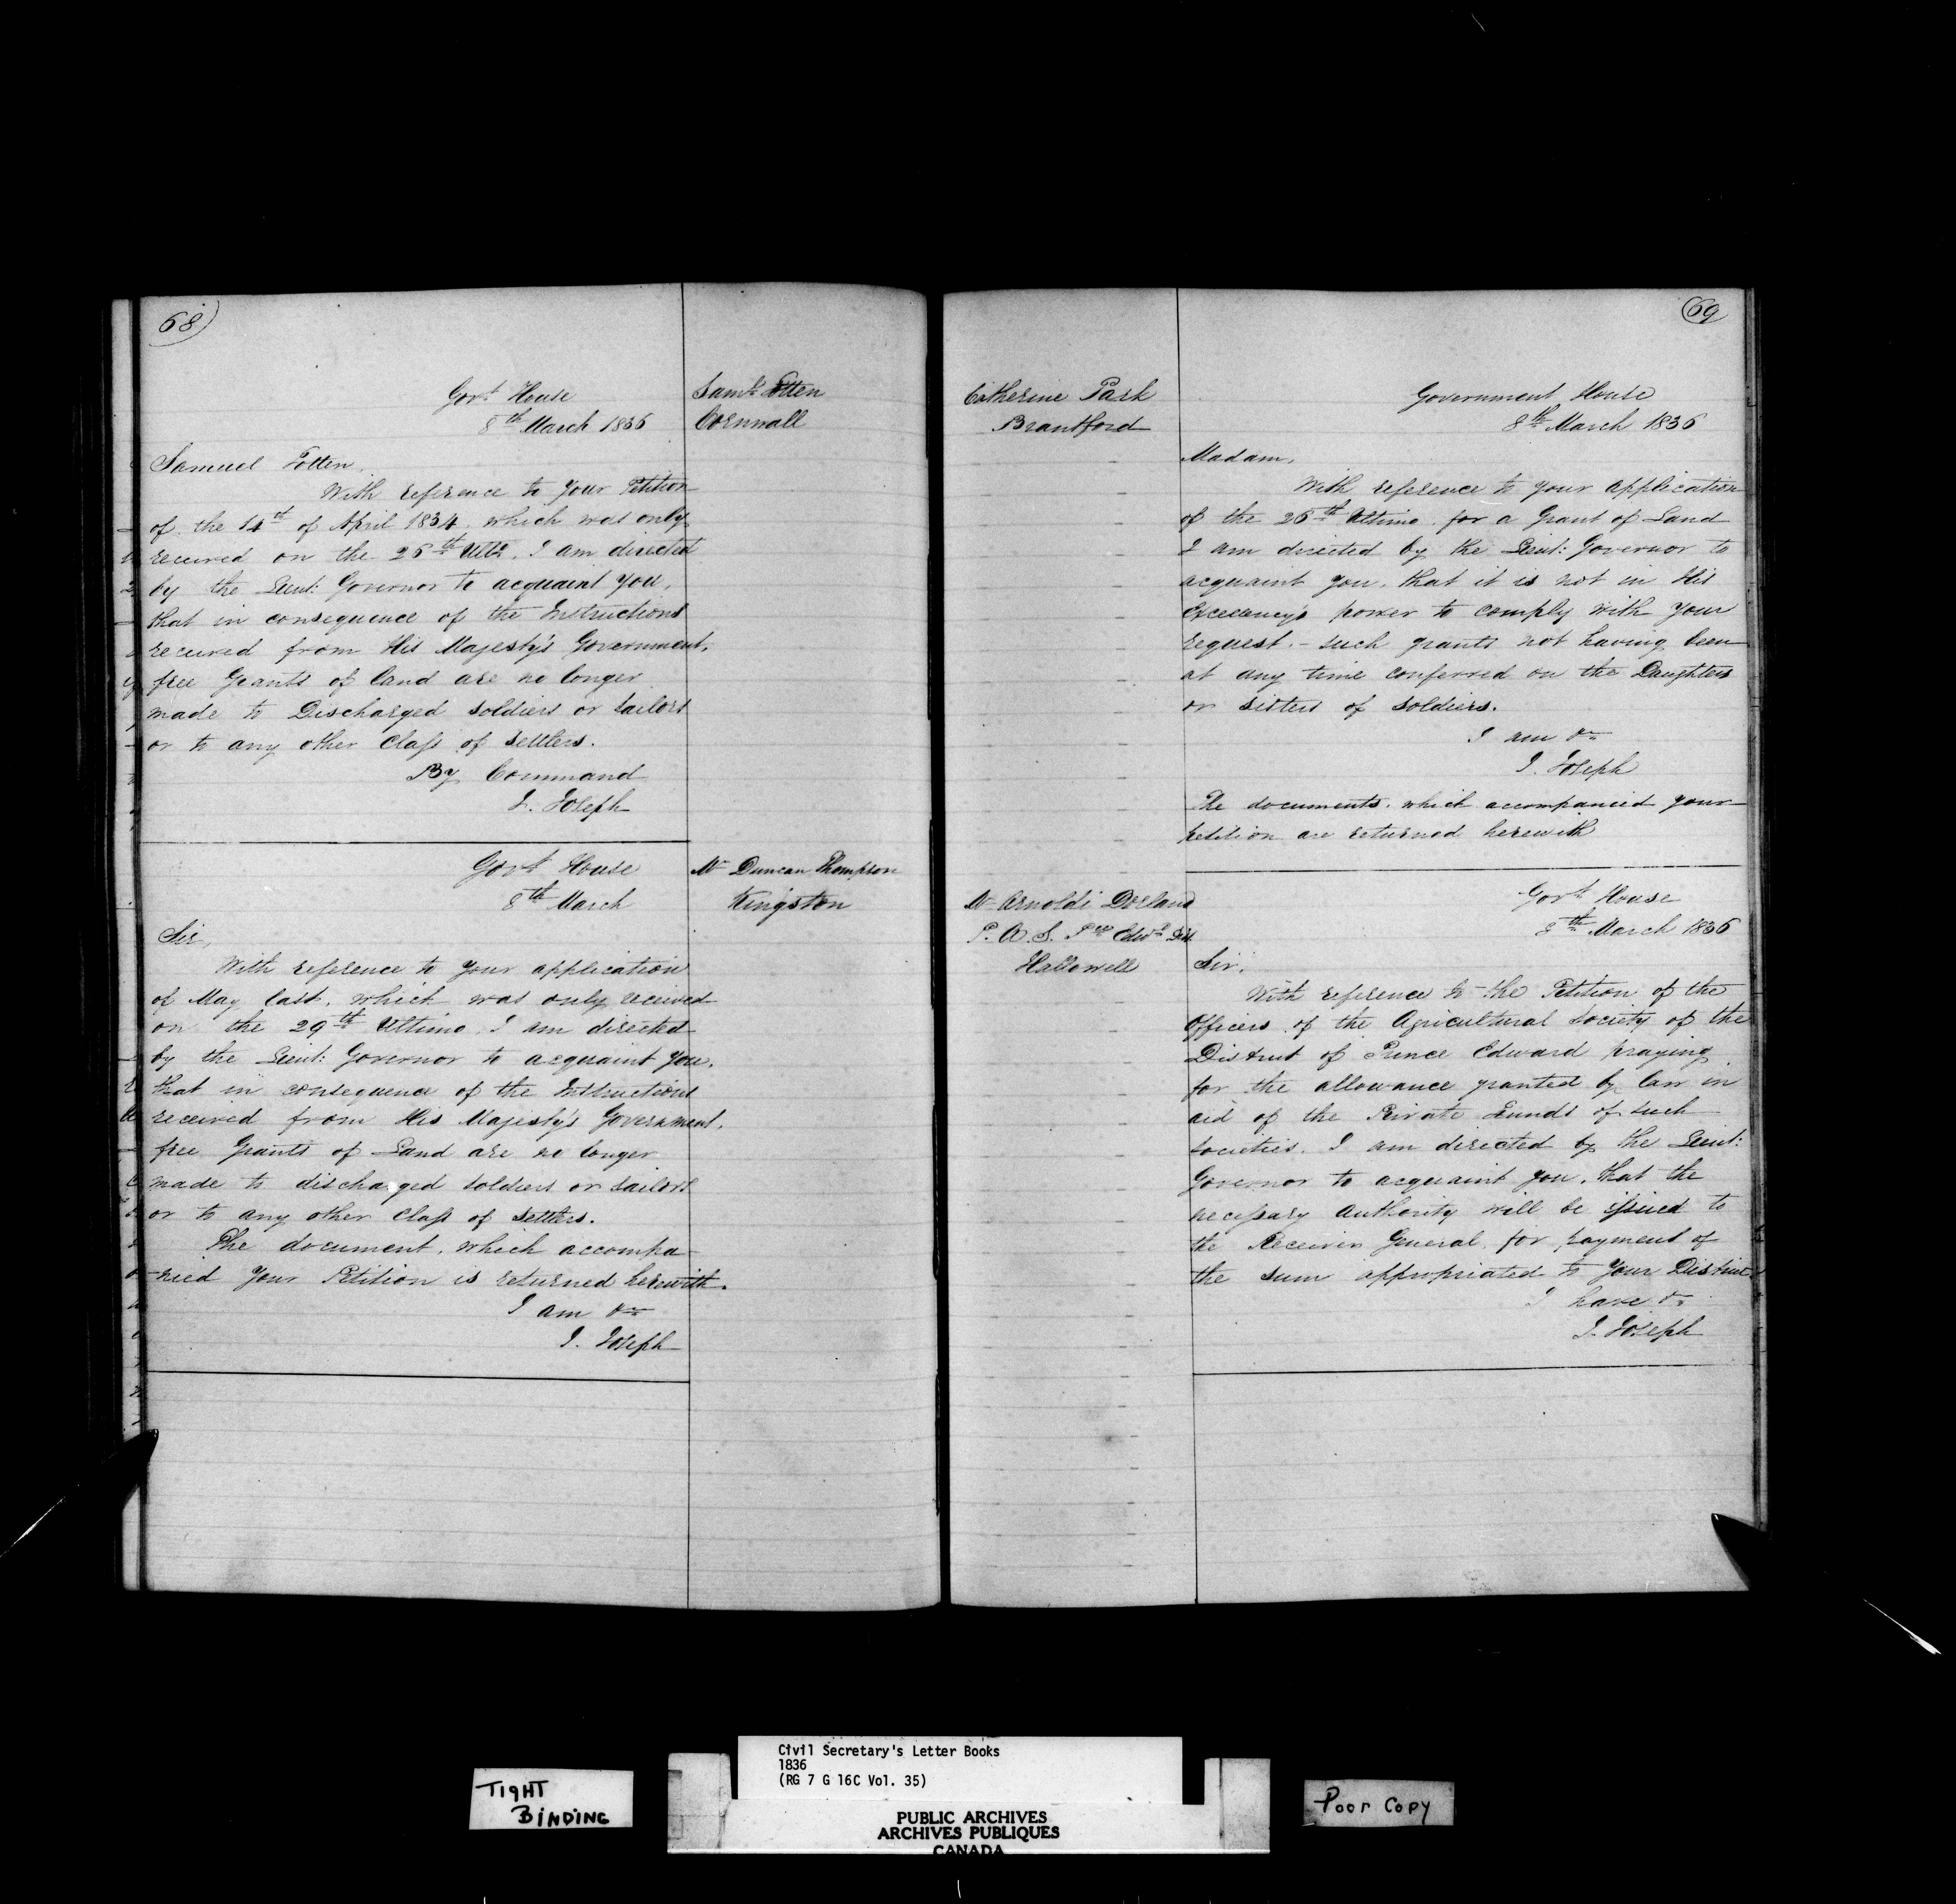 68)
Govt House
8th March 1836
Saml Totten
Cornwall
Samuel Totten,
With reference to your Petition
of the 14th of April 1834. which was only
received on the 26th Ulto. I am directed
by the Lieut: Governor to acquaint you,
that in consequence of the Instructions
received from His Majesty's Government,
free Grants of land are no longer
made to Discharged soldiers or sailors
or to any other Class of settlers.
By Command
J. Joseph
Govt House
8th March
Mr Duncan Thompson
Kingston
Sir,
With reference to your application
of May last, which was only received
on the 29th Ultimo, I am directed
by the Lieut: Governor to acquaint you,
that in consequence of the Instructions
received from His Majesty's Government,
free Grants of Land are no longer
made to discharged soldiers or sailors
or to any other Class of settlers.
The document, which accompa-
nied your Petition is returned herewith.
I am &c
J. Joseph
69
Catherine Park
Brantford
Government House
8th March 1836
Madam,
With reference to your application
of the 26th Ultimo for a Grant of Land
I am directed by the Lieut: Governor to
acquaint you, that it is not in His
Excellency's power to comply with your
request. - such grants not having been
at any time conferred on the Daughters
or sisters of soldiers.
I am &c
J. Joseph
The documents, which accompanied your
petition are returned herewith
Mr Arnoldi Dorland
P. A. S. Pce Edwd Dist.
Hallowell
Govt House
8th March 1836
Sir,
With reference to the Petition of the
Officers of the Agricultural Society of the
District of Prince Edward praying
for the allowance granted by law in
aid of the Private Funds of such
societies. I am directed by the Lieut:
Governor to acquaint you, that the
necessary Authority will be issued to
the Receiver General for payment of
the sum appropriated to your District
I have &c
J. Joseph
TIGHT
BINDING
Civil Secretary's Letter Books
1836
(RG 7 G 16C Vol. 35)
PUBLIC ARCHIVES
ARCHIVES PUBLIQUES
CANADA
Poor Copy